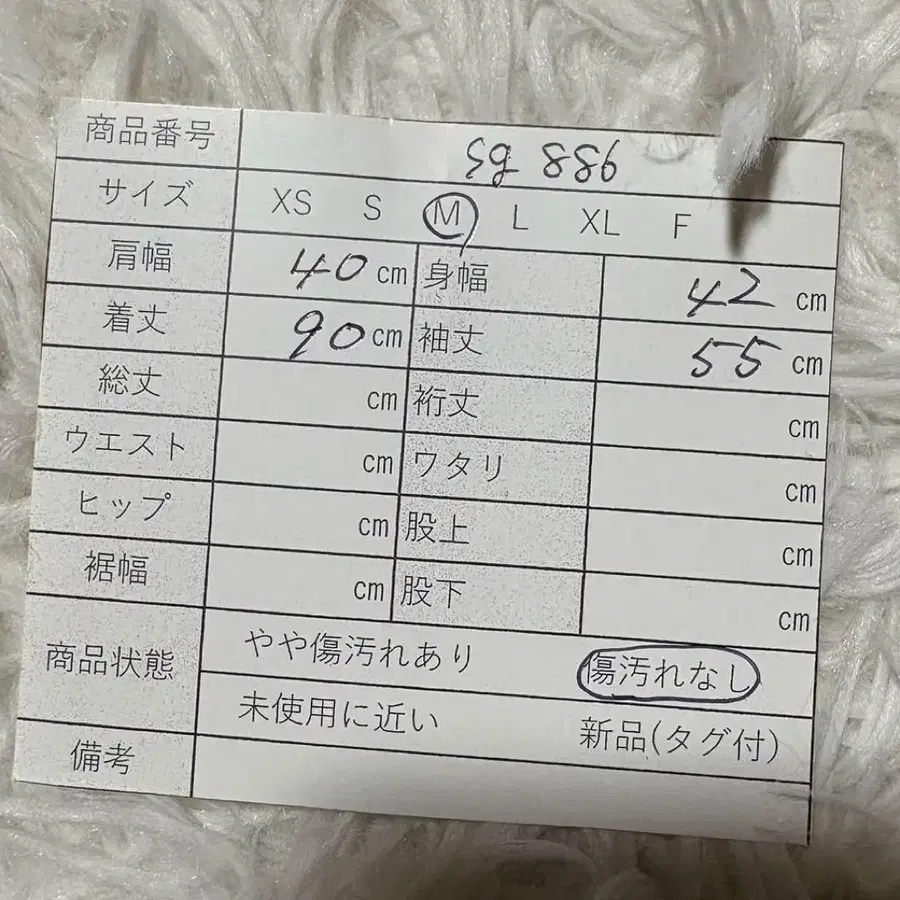 商品番号 sg 886
サイズ XS S M L XL F
肩幅 40 cm 身幅 42 cm
着丈 90 cm 袖丈 55 cm
総丈 cm 裄丈 cm
ウエスト cm ワタリ cm
ヒップ cm 股上 cm
裾幅 cm 股下 cm
商品状態 やや傷汚れあり 傷汚れなし
未使用に近い 新品(タグ付)
備考